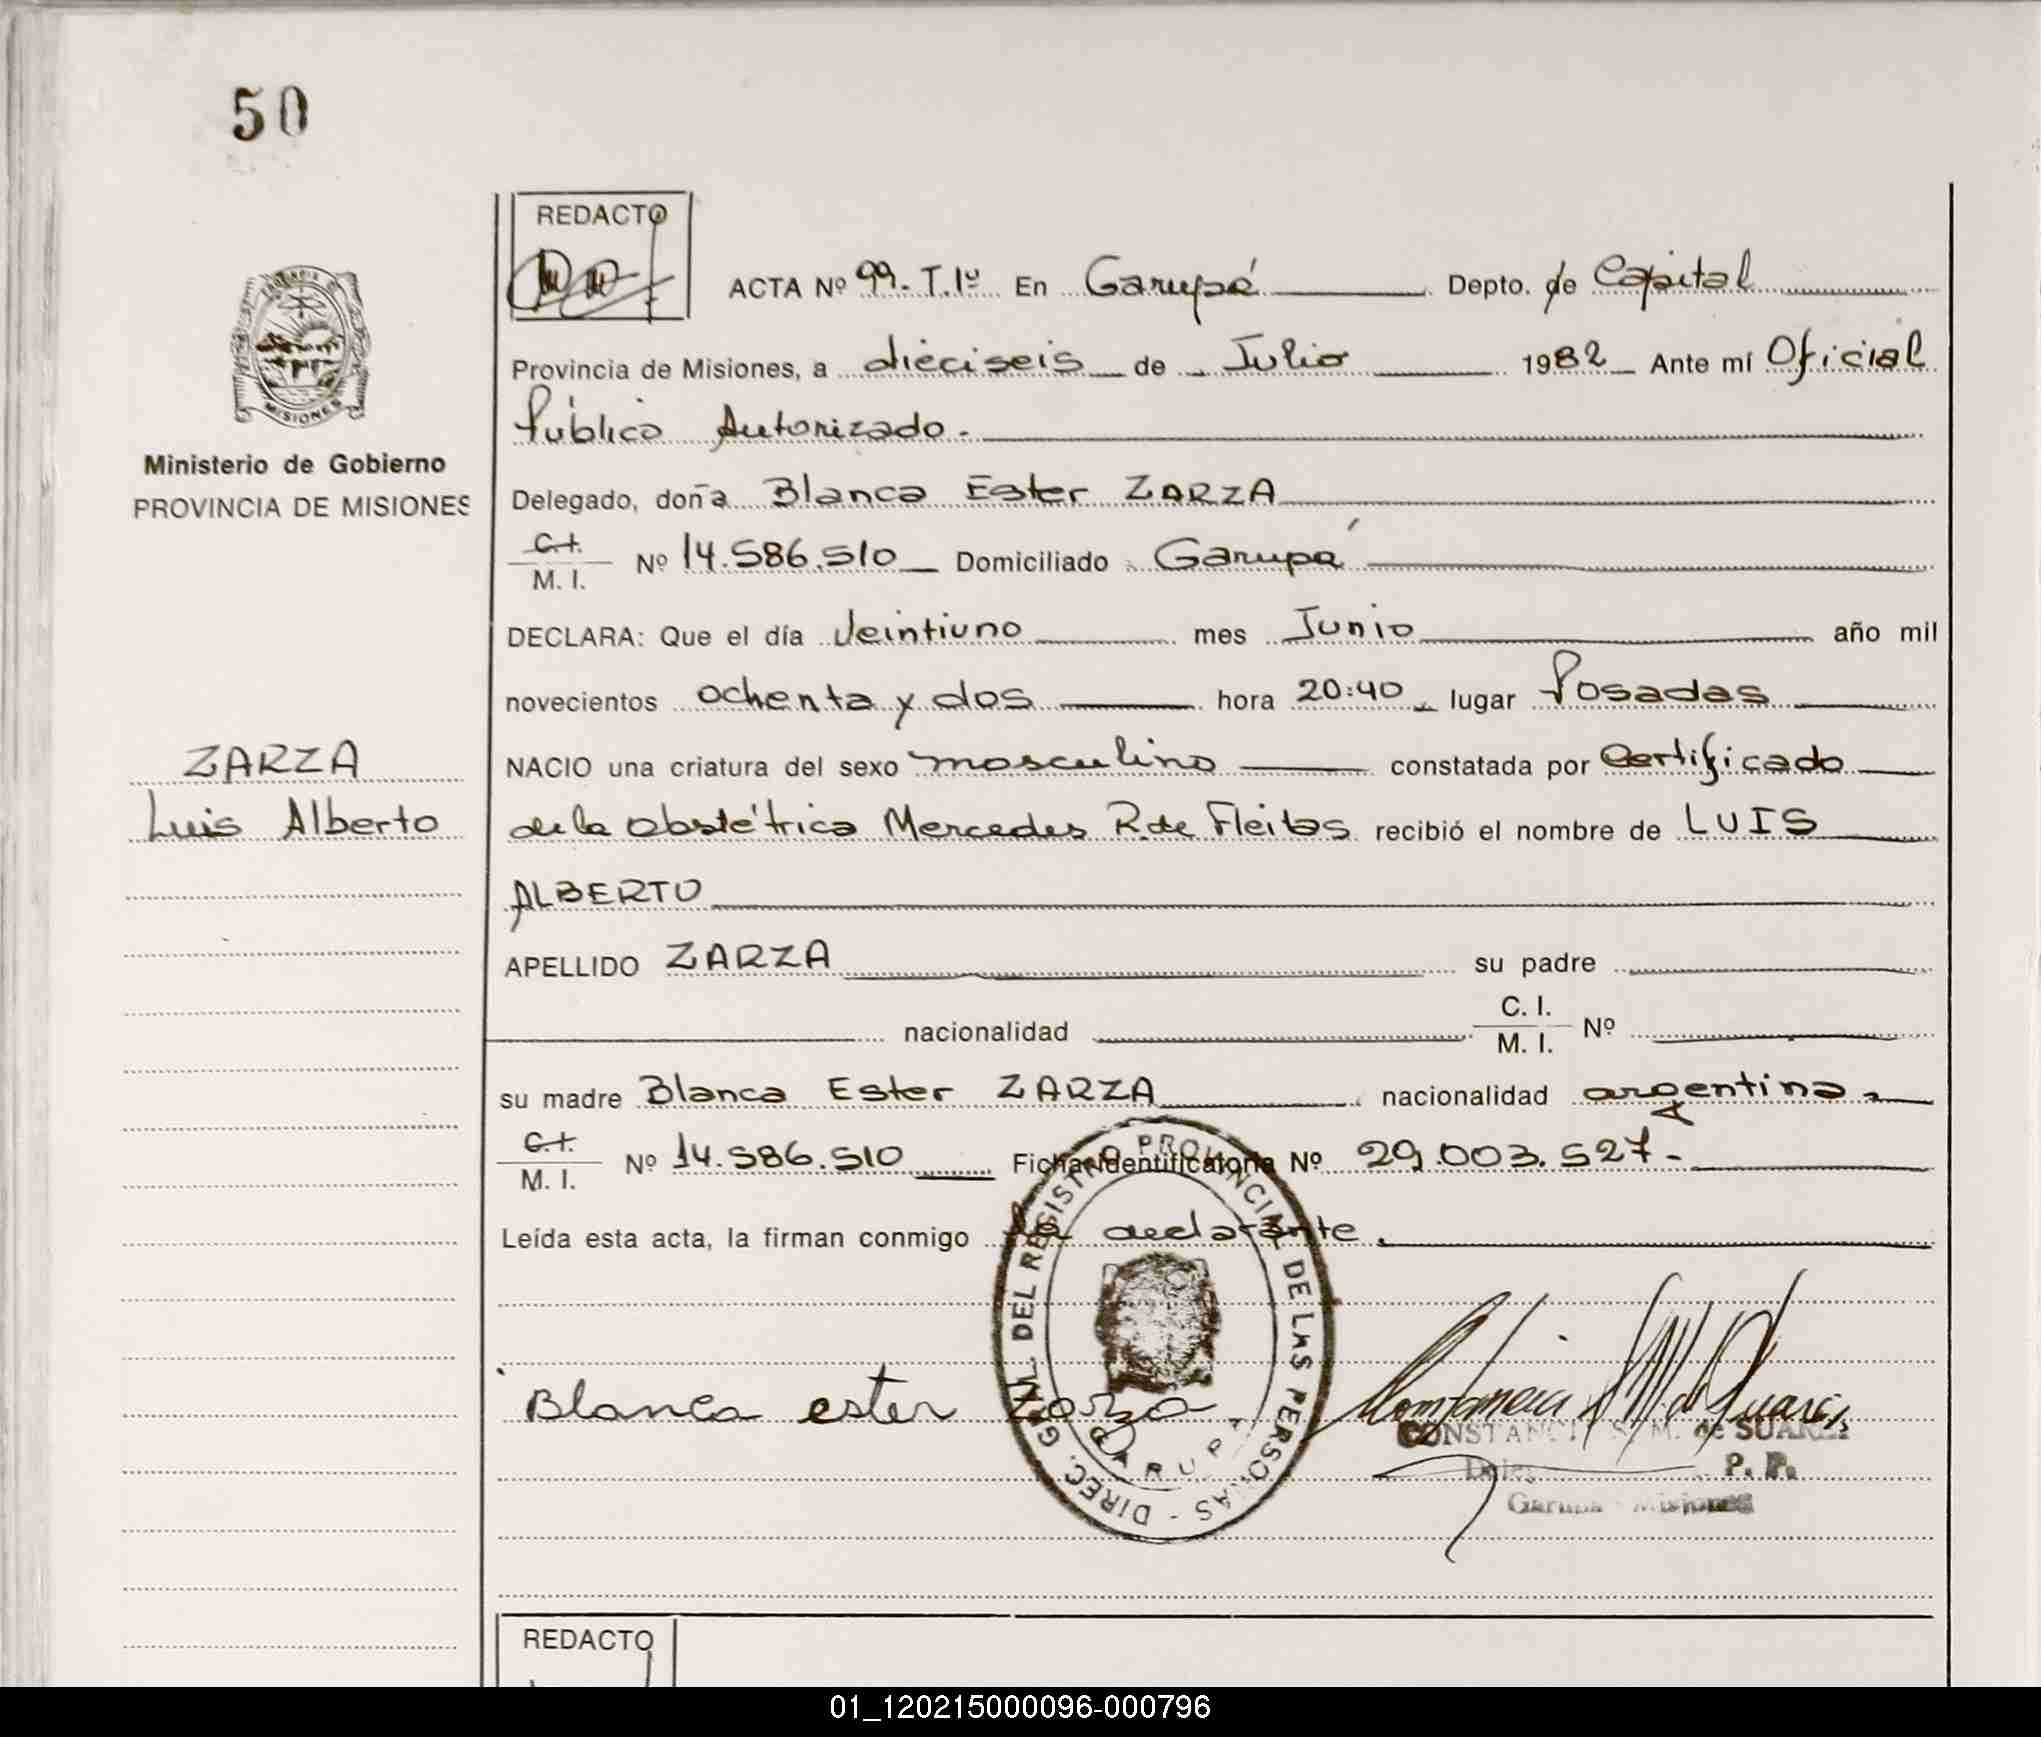 50
REDACTO
ACTA Nº 99. T. 1º En Garupá Depto. de Capital
Provincia de Misiones, a dieciseis de Julio 1982 Ante mí Oficial
Público Autorizado.
Ministerio de Gobierno
PROVINCIA DE MISIONES
MISIONES
Delegado, doña Blanca Ester ZARZA
C.I. / M. I. Nº 14.586.510 Domiciliado Garupá
DECLARA: Que el día Veintiuno mes Junio año mil
novecientos ochenta y dos hora 20:40 lugar Posadas
ZARZA
Luis Alberto
NACIO una criatura del sexo masculino constatada por Certificado
de la Obstétrica Mercedes R. de Fleitas recibió el nombre de LUIS
ALBERTO
APELLIDO ZARZA su padre
nacionalidad C. I. / M. I. Nº
su madre Blanca Ester ZARZA nacionalidad argentina
C.I. / M. I. Nº 14.586.510 Ficha Identificatoria Nº 29.003.527.-
Leída esta acta, la firman conmigo la declarante.
DIREC. GRAL. DEL REGISTRO PROVINCIAL DE LAS PERSONAS -
GARUPA
Blanca ester Zarza
CONSTANCIA S. M. de SUAREZ
P. P.
Garupa - Misiones
REDACTO
01_120215000096-000796